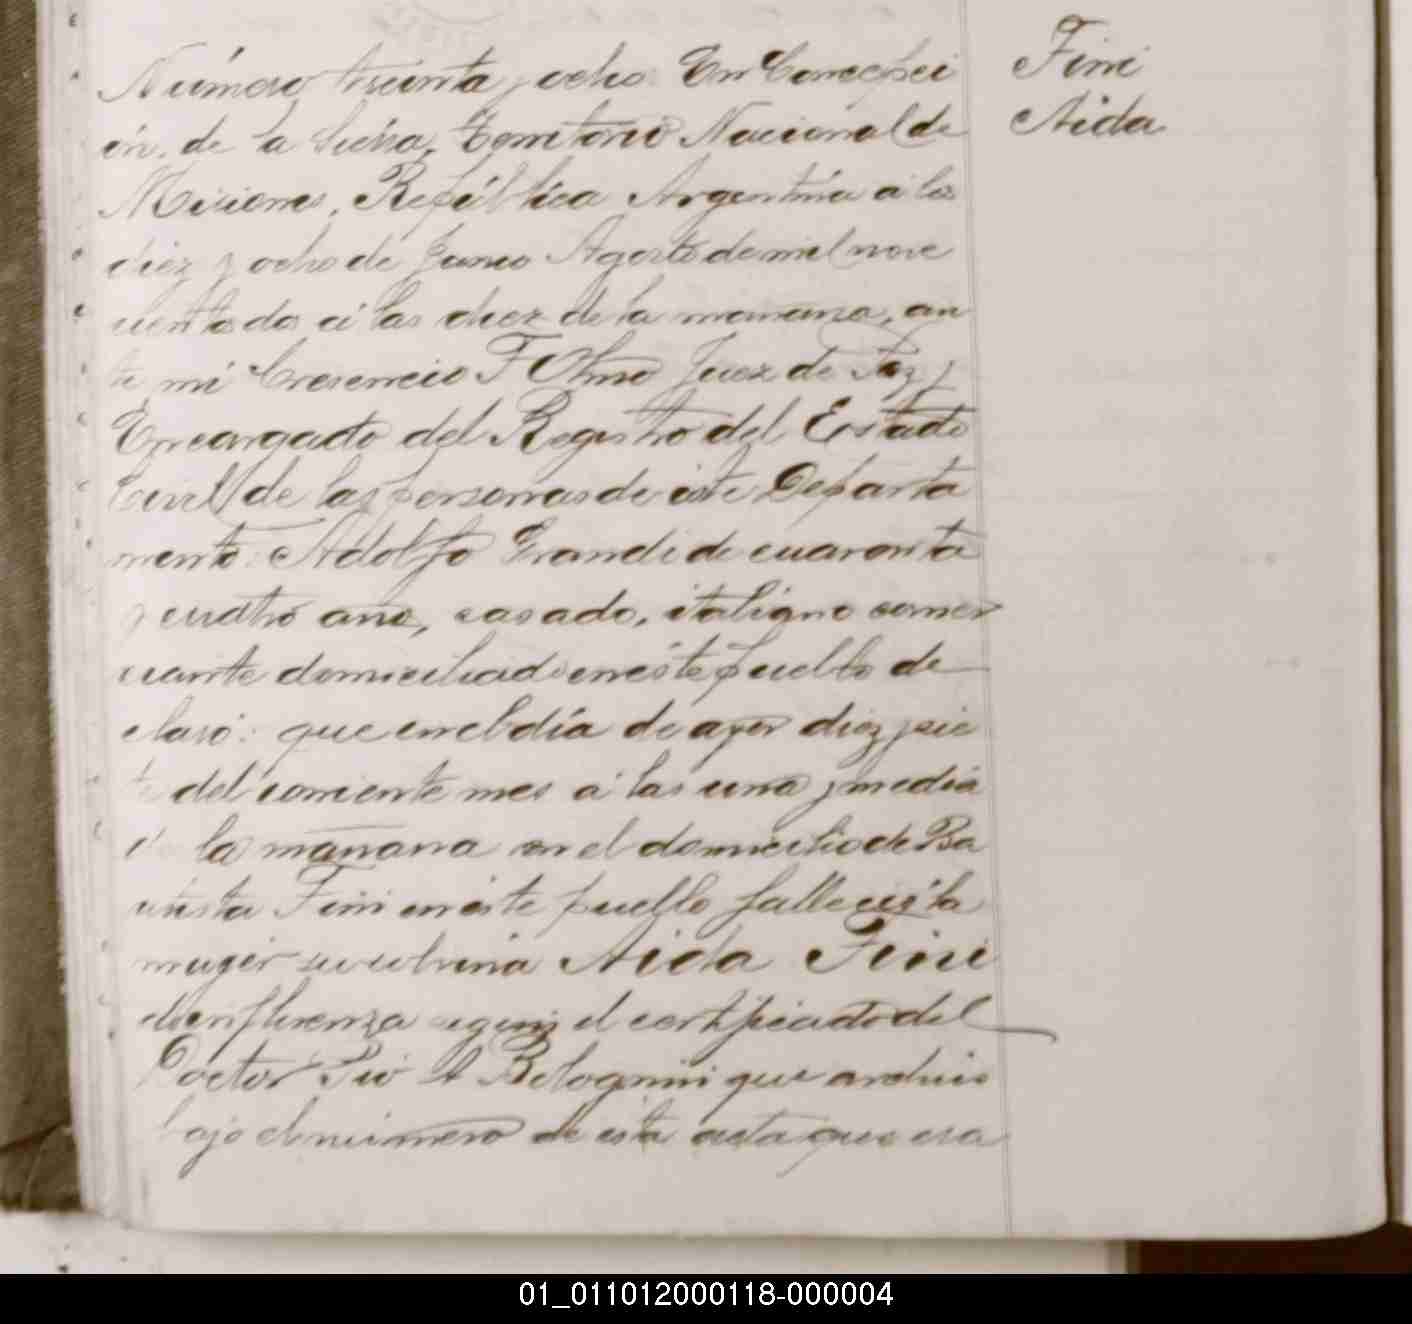 Número treinta y ocho. En Concepci
ón, de la Sierra, Territorio Nacional de
Misiones, República Argentina á los
diez y ocho de Junio Agosto de mil nove
cientos dos á las diez de la mañana, an
te mi Cresencio F Olmo Juez de Paz y
Encargado del Registro del Estado
Civil de las personas de éste Departa
mento: Adolfo Grandi de cuarenta
y cuatro años, casado, italiano comer
ciante domiciliado en éste pueblo de
claró: que en el dia de ayer diez y sie
te del corriente mes á las una y media
de la mañana en el domicilio de Ba
utista Fini en éste pueblo falleció la
muger su sobrina Aida Fini
de influenza segun el certificado del
Doctor Pio A Bolognini que archivo
bajo el número de esta acta que era
Fini
Aida
01_011012000118-000004